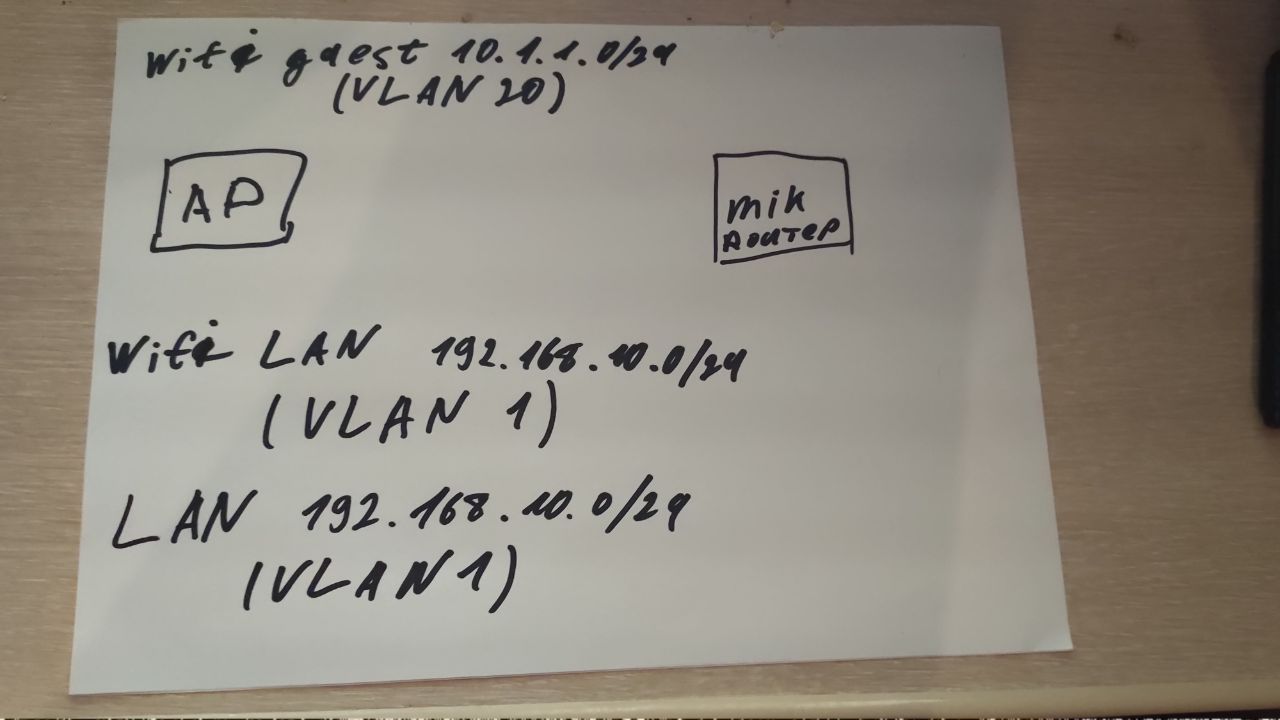 Wifi guest 10.1.1.0/24
(VLAN 20)
AP
mik
роитер
Wifi LAN 192.168.10.0/24
(VLAN 1)
LAN 192.168.10.0/24
(VLAN 1)